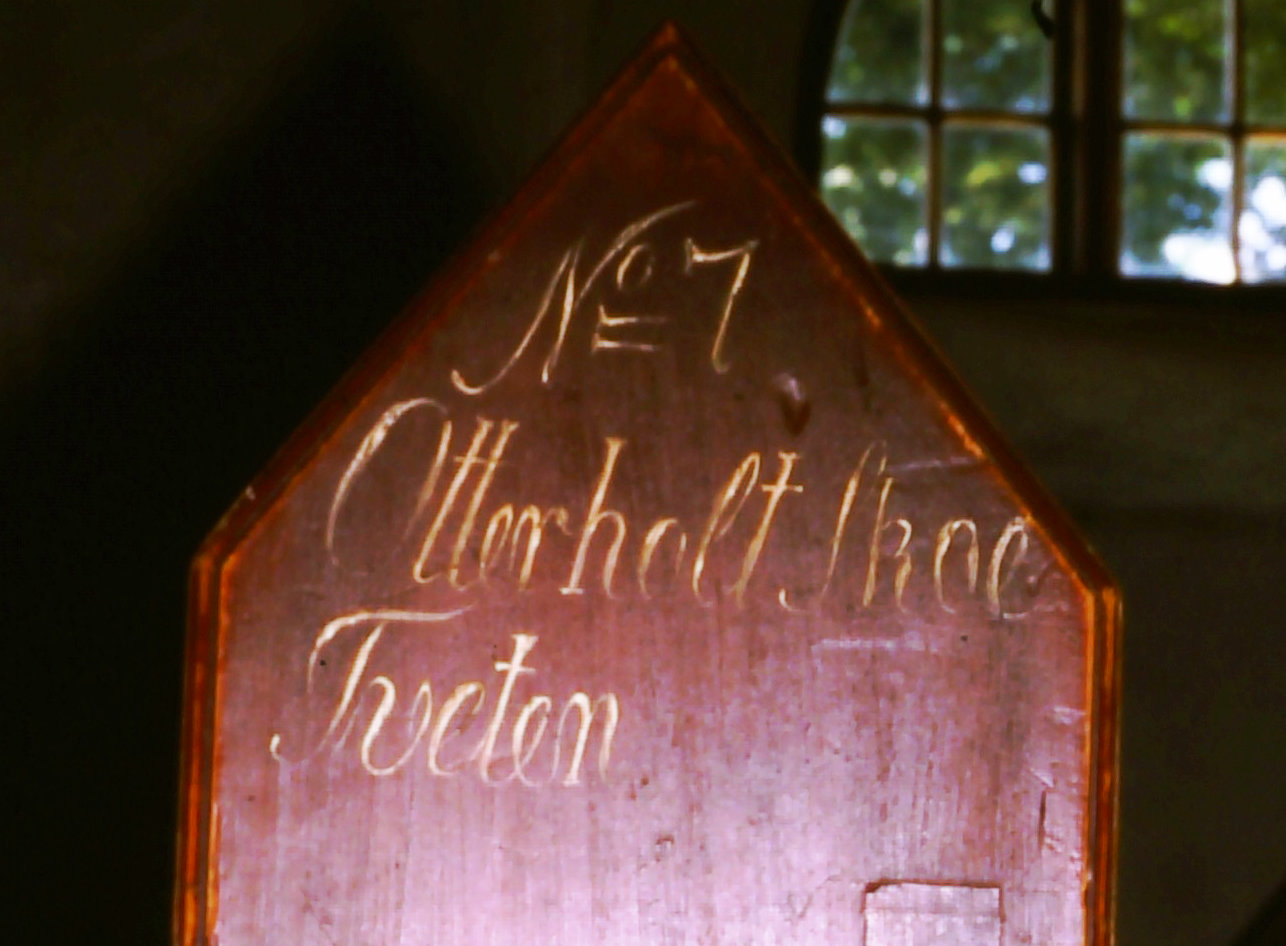 No 7
Otterholt Skoe
Tveten